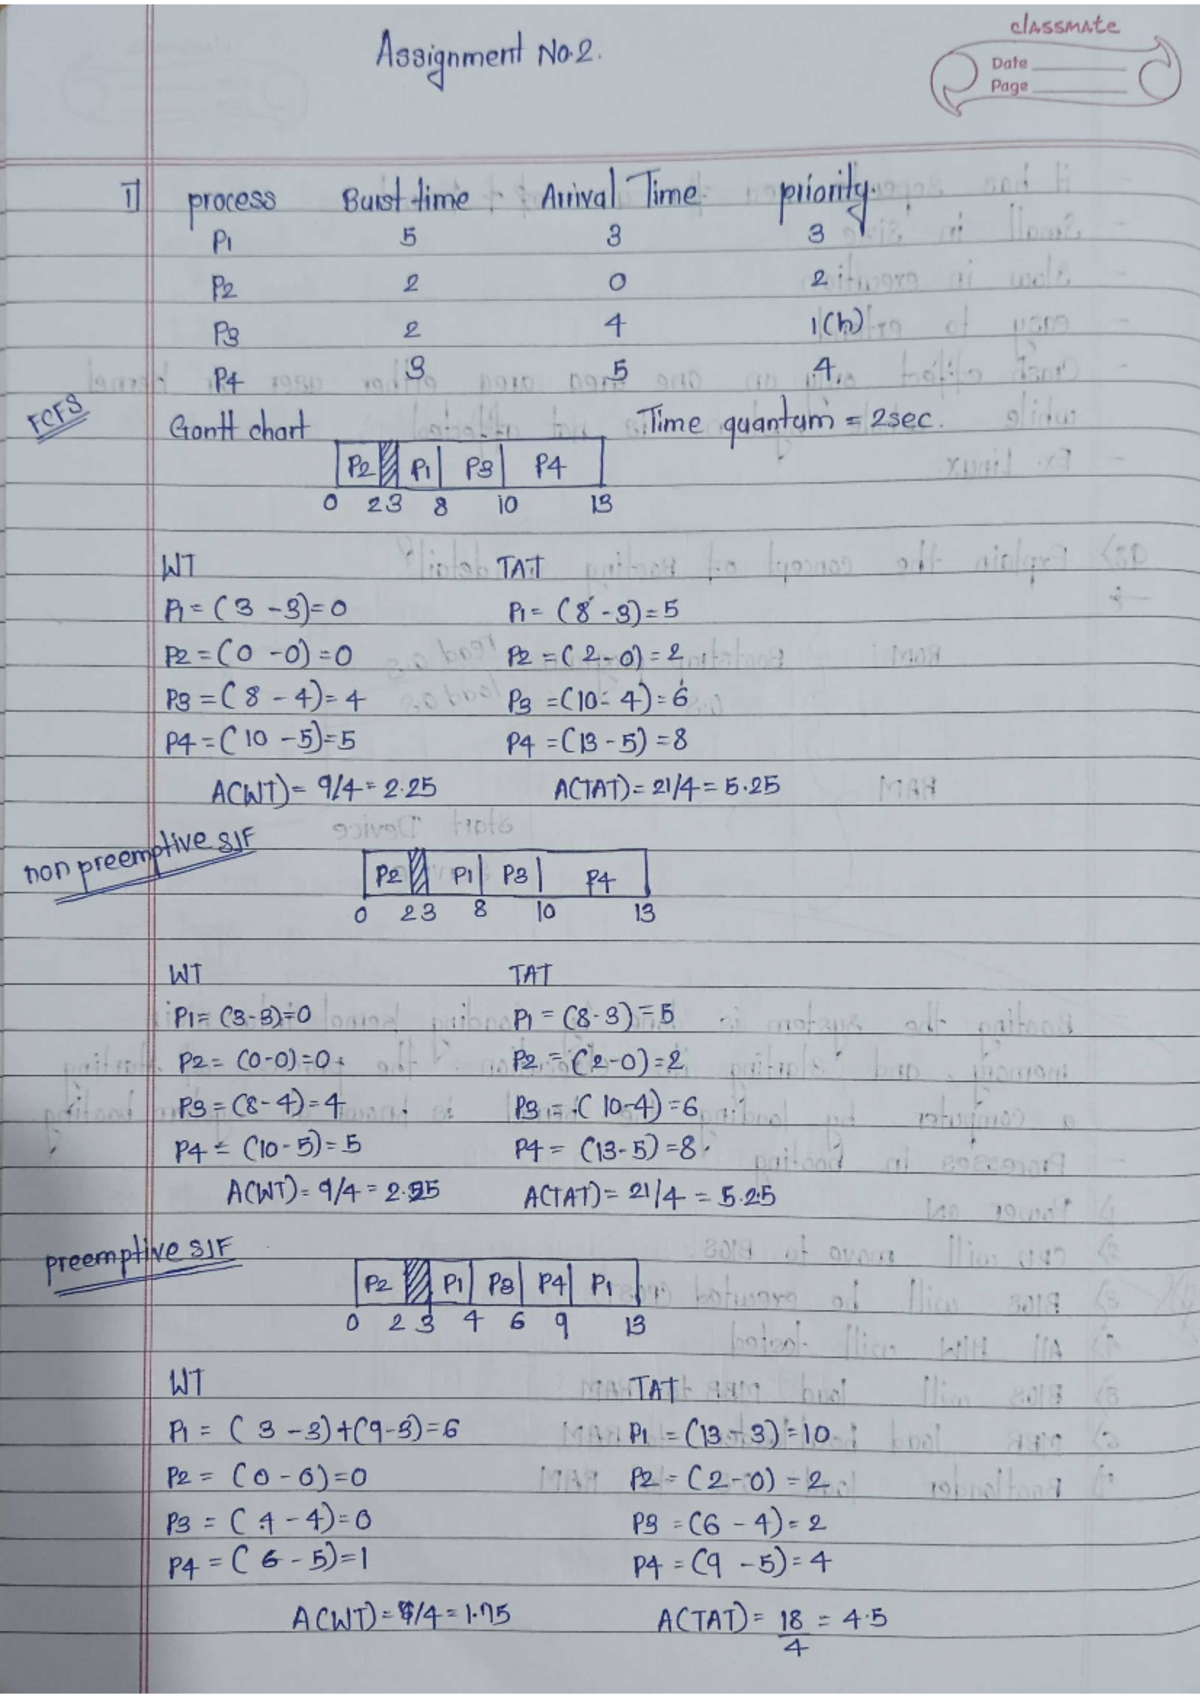 classmate
Date
Page
Assignment No.2.
1] process Burst time Arrival Time priority.
P1 5 3 3
P2 2 0 2
P3 2 4 1(h)
P4 3 5 4.
FCFS
Gantt chart Time quantum = 2sec.
P2 P1 P3 P4
0 2 3 8 10 13
WT TAT
P1 = (3 - 3) = 0 P1 = (8 - 3) = 5
P2 = (0 - 0) = 0 P2 = (2 - 0) = 2
P3 = (8 - 4) = 4 P3 = (10 - 4) = 6
P4 = (10 - 5) = 5 P4 = (13 - 5) = 8
A(WT) = 9/4 = 2.25 A(TAT) = 21/4 = 5.25
non preemptive SJF
P2 P1 P3 P4
0 2 3 8 10 13
WT TAT
P1 = (3-3) = 0 P1 = (8-3) = 5
P2 = (0-0) = 0 P2 = (2-0) = 2
P3 = (8-4) = 4 P3 = (10-4) = 6
P4 = (10-5) = 5 P4 = (13-5) = 8
A(WT) = 9/4 = 2.25 A(TAT) = 21/4 = 5.25
preemptive SJF
P2 P1 P3 P4 P1
0 2 3 4 6 9 13
WT TAT
P1 = (3 - 3) + (9-3) = 6 P1 = (13 - 3) = 10
P2 = (0 - 0) = 0 P2 = (2-0) = 2
P3 = (4 - 4) = 0 P3 = (6 - 4) = 2
P4 = (6 - 5) = 1 P4 = (9 - 5) = 4
A(WT) = /4 = 1.75 A(TAT) = 18/4 = 4.5